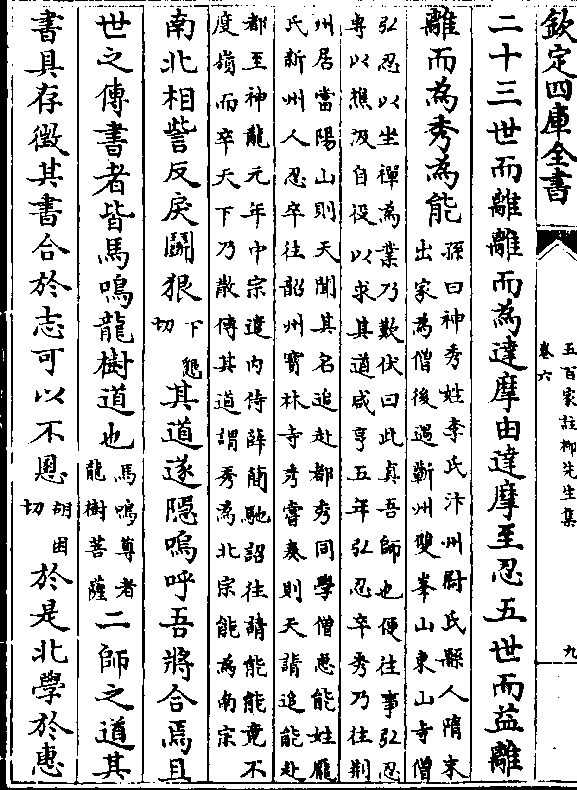 欽定四庫全書
五百家註柳先生集
卷六
九
二十三世而離離而為達摩由達摩至忍五世而益離
離而為秀為能
孫曰神秀姓李氏汴州尉氏縣人隋末
出家為僧後遇蘄州雙峯山東山寺僧
弘忍以坐禪為業乃歎伏曰此真吾師也便往事弘忍
専以樵汲自役以求其道咸亨五年弘忍卒秀乃往荆
州居當陽山則天聞其名追赴都秀同學僧恵能姓盧
氏新州人忍卒往韶州寳林寺秀嘗奏則天請追能赴
都至神龍元年中宗遣内侍薛簡馳詔往請能能竟不
度嶺而卒天下乃散傳其道謂秀為北宗能為南宗
南北相訾反戾鬭狠
下懇
切
其道遂隠嗚呼吾將合焉且
世之傳書者皆馬鳴龍樹道也
馬鳴尊者
龍樹菩薩
二師之道其
書具存徴其書合於志可以不慁
胡困
切
於是北學於惠